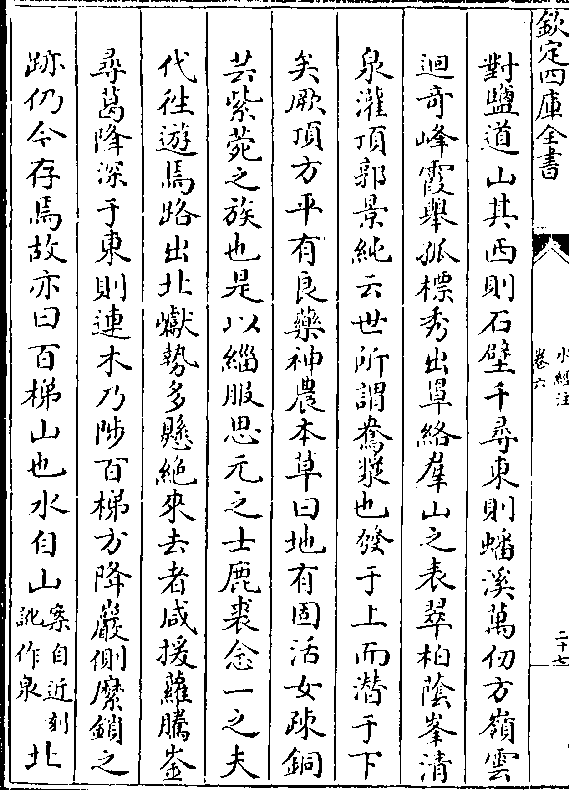 欽定四庫全書
水經注
卷六
二十七
對鹽道山其西則石壁千尋東則蟠溪萬仞方嶺雲
迴奇峰霞舉孤標秀出罩絡羣山之表翠柏蔭峯清
泉灌頂郭景純云世所謂鴦漿也發于上而潛于下
矣厥頂方平有良藥神農本草曰地有固活女疎銅
芸紫菀之族也是以緇服思元之士鹿裘念一之夫
代往遊焉路出北巘勢多懸絶來去者咸援蘿騰崟
尋葛降深于東則連木乃陟百梯方降巖側縻鎖之
跡仍今存焉故亦曰百梯山也水自山案自近刻訛作泉北